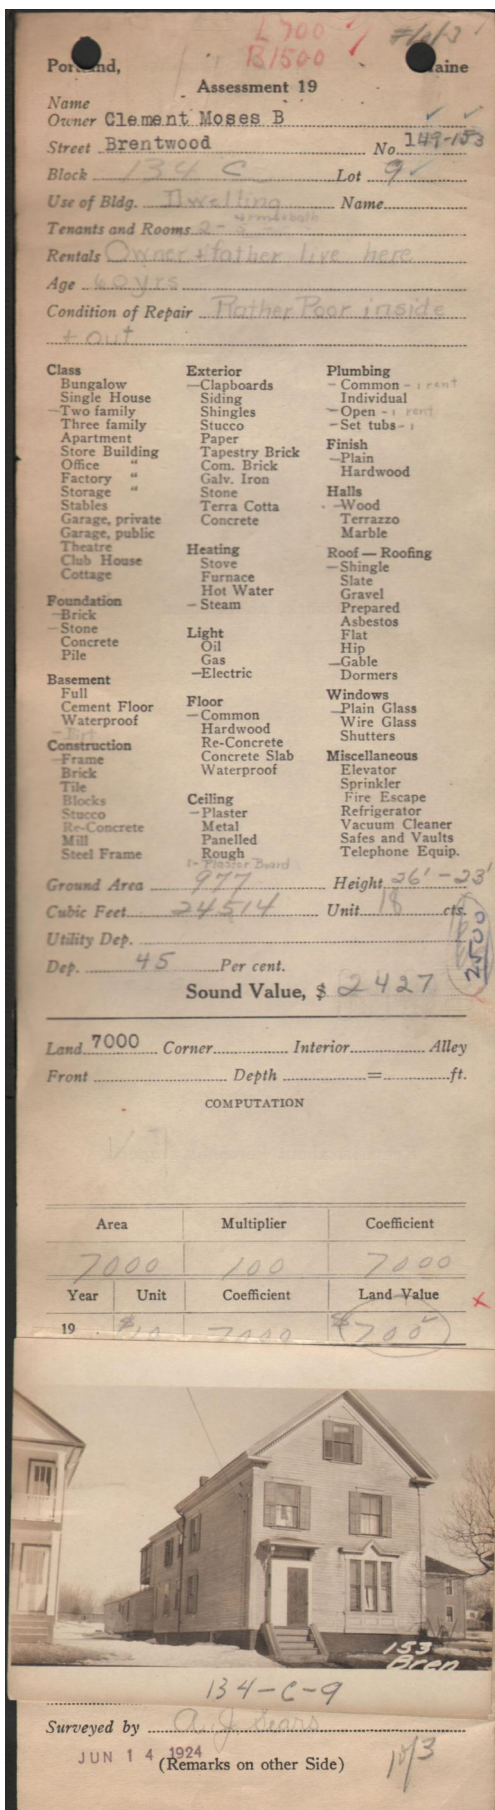 L700 #1 of 3
B1500
Portland, Maine
Assessment 19
Name
Owner Clement Moses B
Street Brentwood No. 149-153
Block 134 C Lot 9
Use of Bldg. Dwelling Name
Tenants and Rooms 2-5
Rentals Owner + father live here
Age 60 yrs
Condition of Repair Rather Poor inside
+ out
Class
Bungalow
Single House
Two family
Three family
Apartment
Store Building
Office "
Factory "
Storage "
Stables
Garage, private
Garage, public
Theatre
Club House
Cottage
Foundation
Brick
Stone
Concrete
Pile
Basement
Full
Cement Floor
Waterproof
Dirt
Construction
Frame
Brick
Tile
Blocks
Stucco
Re-Concrete
Mill
Steel Frame
Exterior
Clapboards
Siding
Shingles
Stucco
Paper
Tapestry Brick
Com. Brick
Galv. Iron
Stone
Terra Cotta
Concrete
Heating
Stove
Furnace
Hot Water
Steam
Light
Oil
Gas
Electric
Floor
Common
Hardwood
Re-Concrete
Concrete Slab
Waterproof
Ceiling
Plaster
Metal
Panelled
Rough
1-Plaster Board
Plumbing
Common - 1 rent
Individual
Open - 1 rent
Set tubs - 1
Finish
Plain
Hardwood
Halls
Wood
Terrazzo
Marble
Roof — Roofing
Shingle
Slate
Gravel
Prepared
Asbestos
Flat
Hip
Gable
Dormers
Windows
Plain Glass
Wire Glass
Shutters
Miscellaneous
Elevator
Sprinkler
Fire Escape
Refrigerator
Vacuum Cleaner
Safes and Vaults
Telephone Equip.
Ground Area 977 Height 26' - 23'
Cubic Feet 24514 Unit 18 cts.
Utility Dep.
2500
Dep. 45 Per cent.
Sound Value, $ 2427
Land 7000 Corner Interior Alley
Front Depth = ft.
COMPUTATION
Area Multiplier Coefficient
7000 100 7000
Year Unit Coefficient Land Value
19 $10 7000 $700
153
Bren
134-C-9
Surveyed by A. J. Sears
JUN 14 1924
(Remarks on other Side) 1 of 3